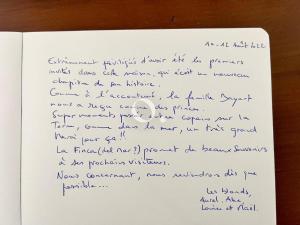 10-12 Août 2022
Extrêmement privilégiés d'avoir été les premiers
invités dans cette maison, qui écrit un nouveau
chapitre de son histoire.
Comme à l'accoutumé, la famille Bayart
nous a reçu comme des princes.
Super moments copains sur la
Terre, comme dans la mer, un très grand
Merci pour ça !!
La Finca (del mar ?) promet de beaux souvenirs
à ses prochains visiteurs.
Nous concernant, nous reviendrons dès que
possible...
Les
Aurel,
et Maël.